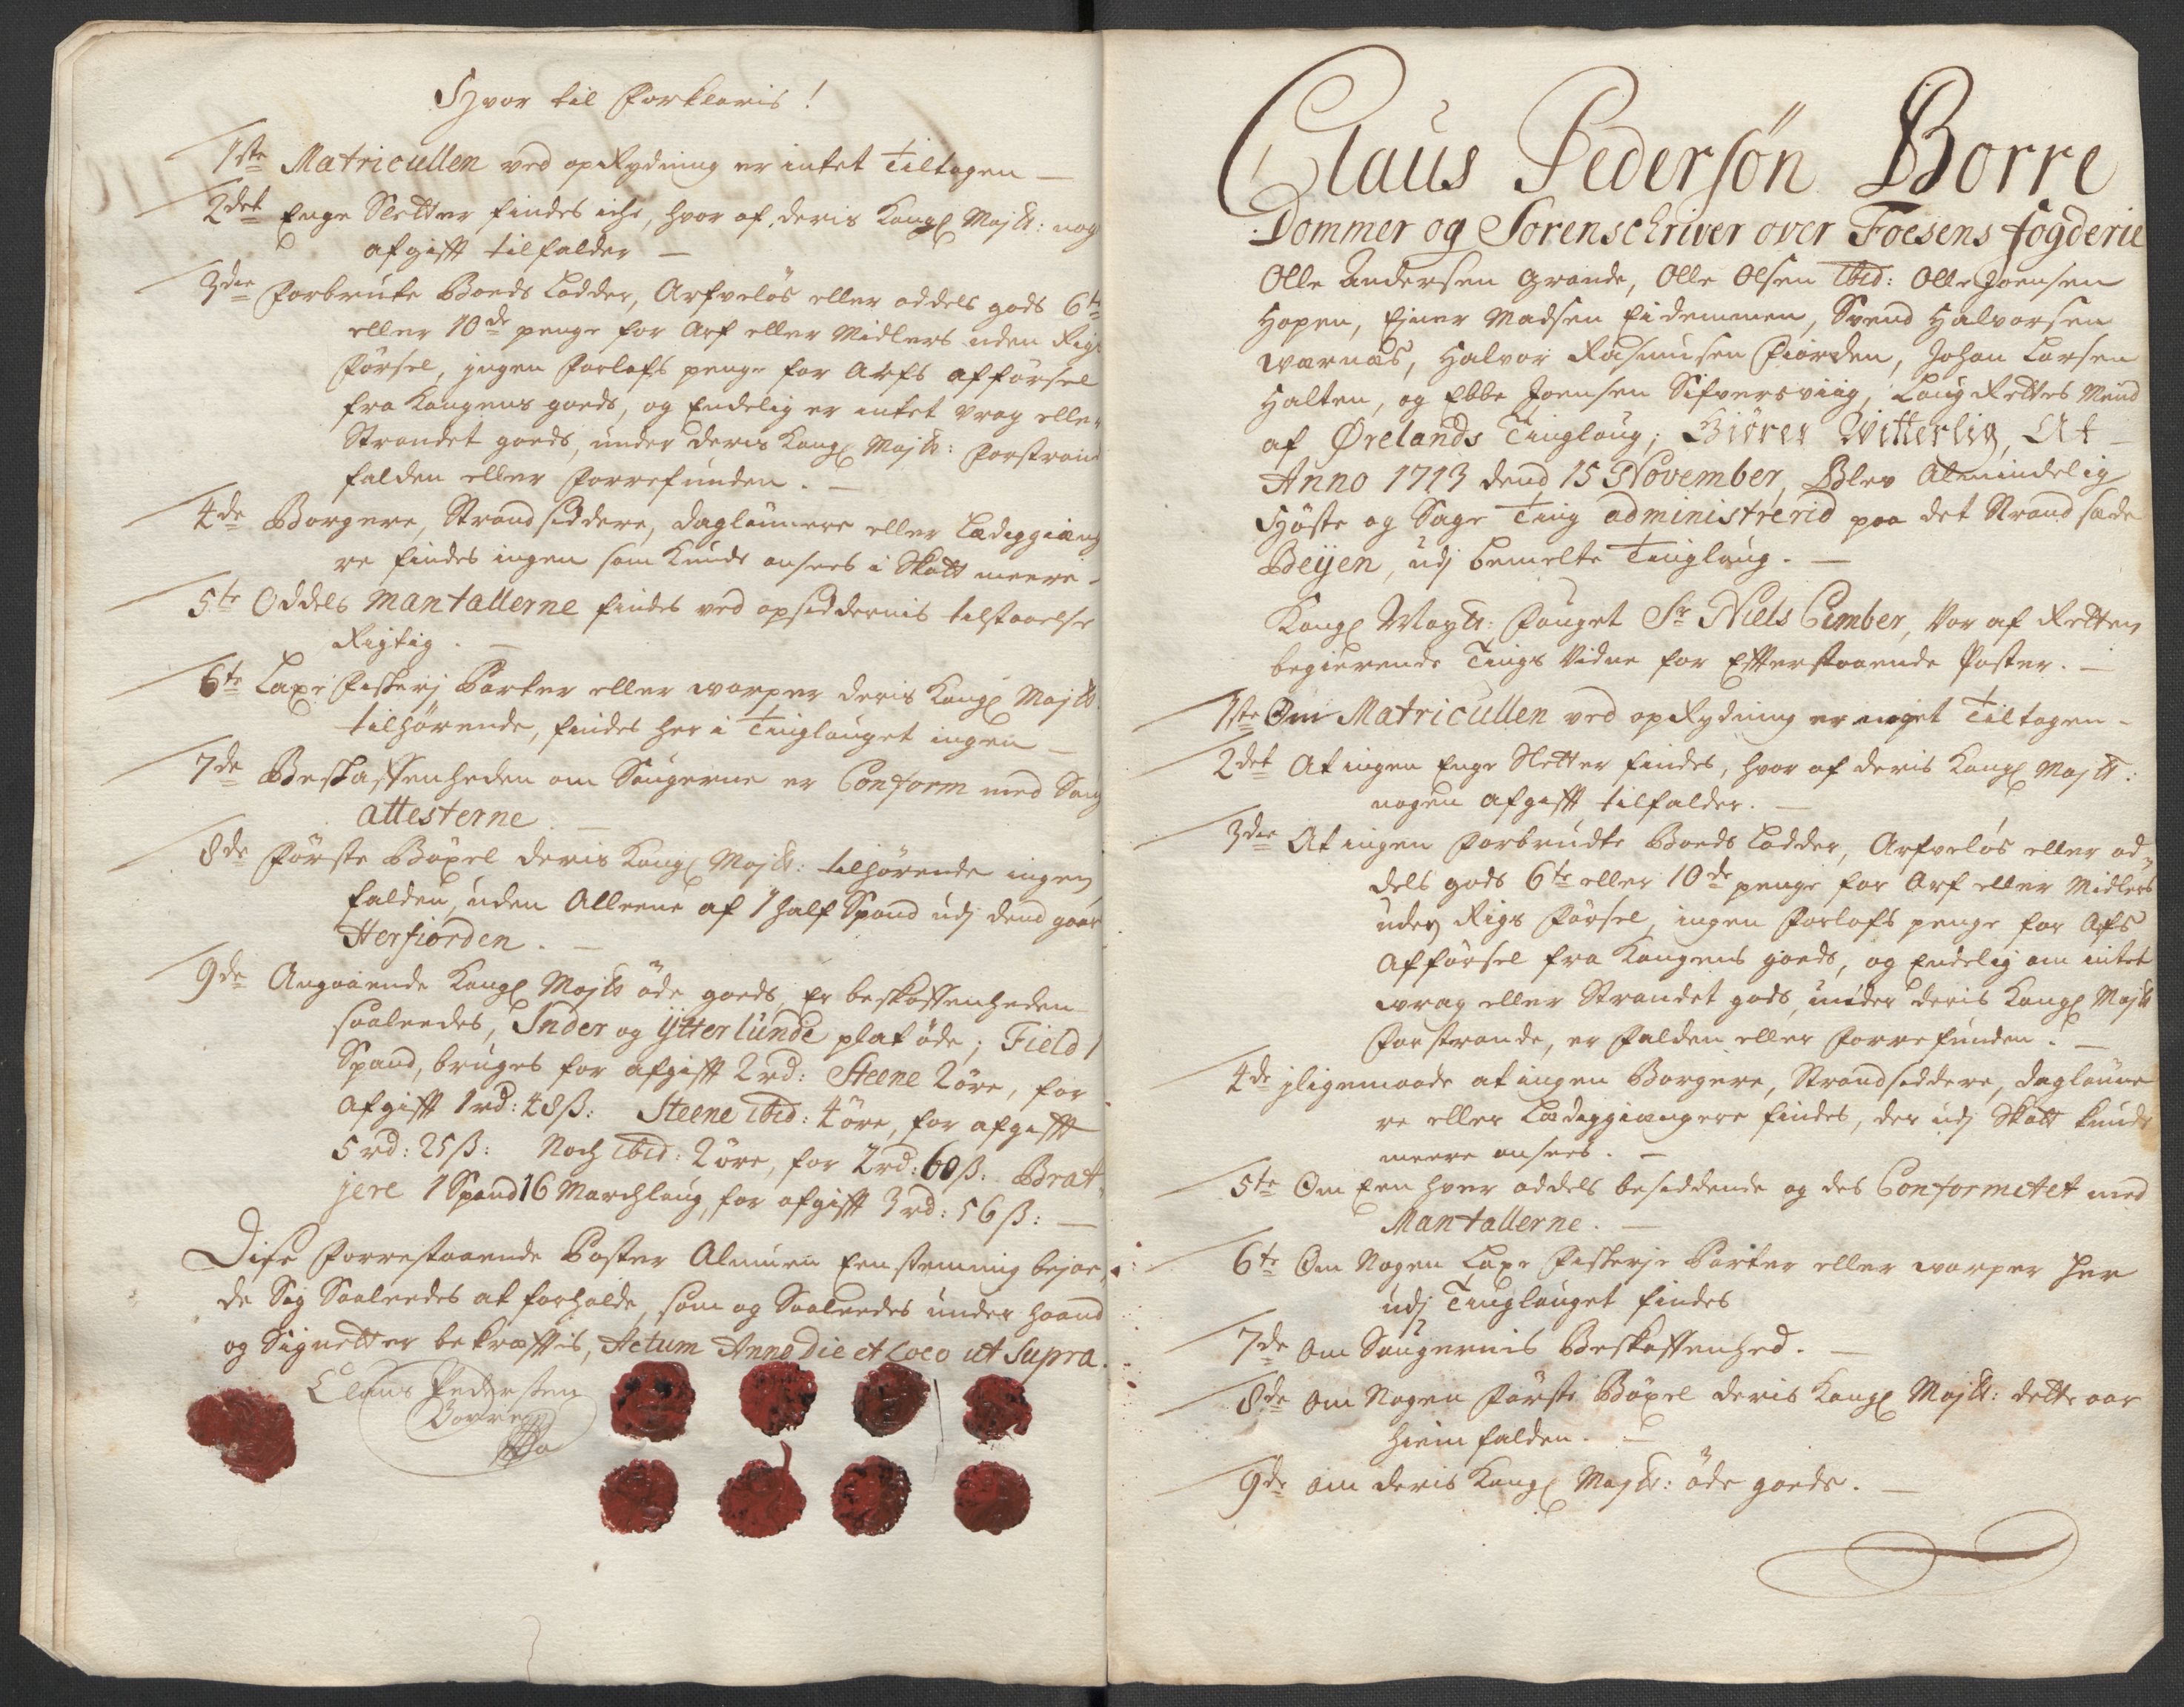 Hvor til Forklaris!
1ste Matricullen ved opRydning er intet Tiltagen —
2det Enge Sletter findes iche, hvor af deris Kongl Mayts: nog
afgifft tilfalder —
3die Forbrutte Boeds Lodder, Arfveløs eller oddels gods 6te
eller 10de penge for Arf eller Midlers uden Rigs
Førsel, jngen Forlofs penge for Arfs afførsel
fra Kongens goeds, og Endelig er intet vrag eller
Strandet goeds, under deris Kongl Mayts: Forstrand
falden eller Forrefunden. —
4de Borgere, Strandsiddere, daglønnere eller Lædiggiæng
re findes ingen som kunde ansees i Skatt meere -
5te Oddels Mantallerne findes ved opsiddernis tilstaaelse
Rigtig. —
6te Laxe Fiskerj Parter eller varper deris Kongl Mayts
tilhørende, findes her i Tinglauget ingen —
7de Beskaffenheden om Saugerne er Conform med Saug
attesterne. —
8de Første Bøxel deris Kongl Mayts: tilhørende ingen
falden, uden Alleene af 1 half Spand udj dend gaard
Herfiorden. —
9de Angaaende Kongl Mayts øde goeds, Er beskaffenheden
saaleedes, Inder og Ytterlunde plat øde; Field 1
Spand, bruges for afgifft 2 rd: Steene 2 øre, for
afgifft 1 rd: 48 ß: Steene ibid: 4 øre, for afgifft
5 rd: 25 ß: Noch ibid: 2 øre, for 2 rd: 60 ß. Brat-
jere 1 Spand 16 Marchlaug, for afgifft 3 rd: 56 ß: —
Disse Forrestaaende Poster Almuen Eenstemmig bejae-
de Sig Saaleedes at forholde, som og Saaleedes under haand
og Signetter bekræfftis, Actum Anno Die et Loco ut Supra.
Claus Pedersen
Borre
Claus Pedersøn Borre
Dommer og Sorenschriver over Foesens Fogderie
Olle Andersen Grande, Olle Olsen ibid: Olle Joensen
Hopen, Ejner Madsen Eidemmen, Svend Halvorsen
Værnæs, Halvor Rasmusen Fiorden, Johan Larsen
Halten, og Ebbe Joensen Sifversviig, LaugRettes Mend
af Ørelands Tinglaug; Giører Vitterlig, At —
Anno 1713 dend 15 November, Blev Almindelig
Høste og Sage Ting administrerid paa det Strandsæde
Beijen, udj bemelte Tinglaug. —
Kongl Mayts: Fouget Sr Niels Cimber, Var af Retten
begierende Tings Vidne for Efterstaaende Poster. —
1ste Om Matricullen ved opRydning er noget Tiltagen -
2det At ingen Enge Sletter findes, hvor af deris Kongl Mayts:
nogen afgifft tilfalder. —
3die At ingen Forbrudte Boeds Lodder, Arfveløs eller od-
dels gods 6te eller 10de penge for Arf eller Midlers
uden Rigs Førsel, ingen Forlofs penge for Afs
Afførsel fra Kongens goeds, og Endelig om intet
vrag eller Strandet gods, under deris Kongl Mayts
Forstrande, er falden eller Forrefunden. —
4de jligemaade at ingen Borgere, Strandsiddere, daglønne
re eller Lædiggiængere findes, der udj Skatt kunde
meere ansees. —
5te Om Een hver oddels besiddende og des Conformitet med
Mantallerne. —
6te Om Nogen Laxe Fiskerje Parter eller varper her
udj Tinglauget findes
7de Om Saugernis Beskaffenhed. —
8de Om Nogen Første Bøxel deris Kongl Mayts: dette aar
hiemfalden. —
9de om deris Kongl Mayts: øde goeds. —